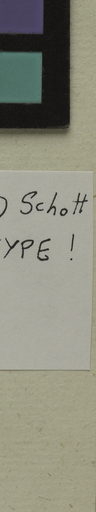 ) Schott
YPE !